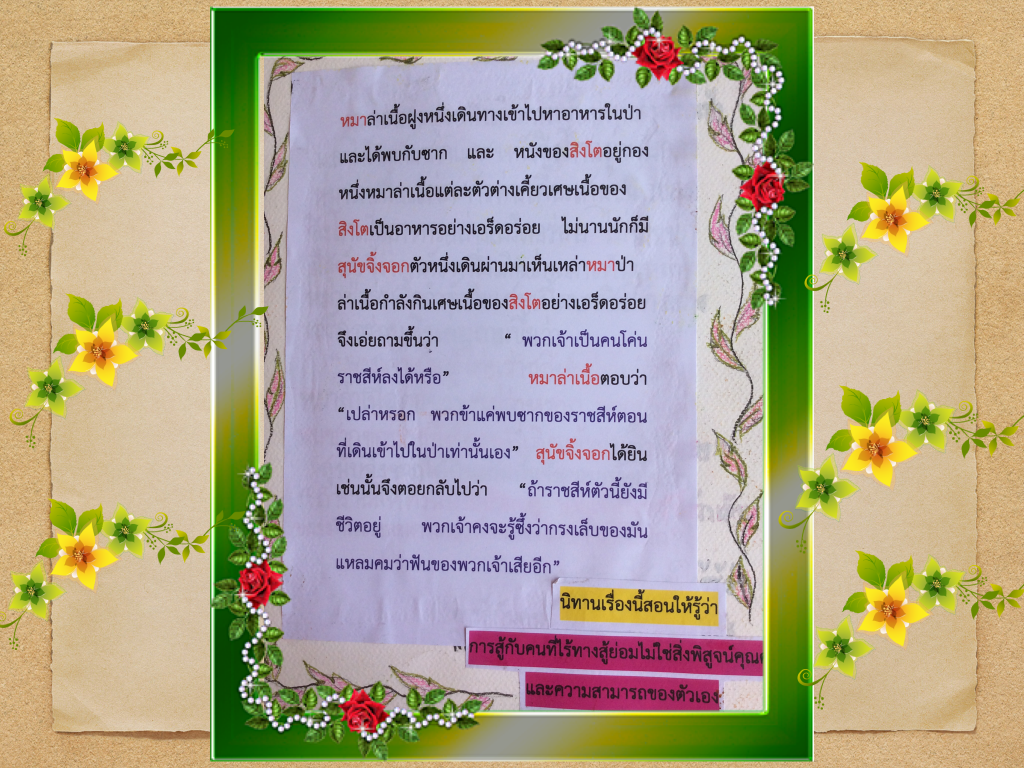 หมาล่าเนื้อฝูงหนึ่งเดินทางเข้าไปหาอาหารในป่า
และได้พบกับซาก และ หนังของสิงโตอยู่กอง
หนึ่งหมาล่าเนื้อแต่ละตัวต่างเคี้ยวเศษเนื้อของ
สิงโตเป็นอาหารอย่างเอร็ดอร่อย ไม่นานนักก็มี
สุนัขจิ้งจอกตัวหนึ่งเดินผ่านมาเห็นเหล่าหมาป่า
ล่าเนื้อกำลังกินเศษเนื้อของสิงโตอย่างเอร็ดอร่อย
จึงเอ่ยถามขึ้นว่า “ พวกเจ้าเป็นคนโค่น
ราชสีห์ลงได้หรือ” หมาล่าเนื้อตอบว่า
“เปล่าหรอก พวกข้าแค่พบซากของราชสีห์ตอน
ที่เดินเข้าไปในป่าเท่านั้นเอง” สุนัขจิ้งจอกได้ยิน
เช่นนั้นจึงตอยกลับไปว่า “ถ้าราชสีห์ตัวนี้ยังมี
ชีวิตอยู่ พวกเจ้าคงจะรู้ซึ้งว่ากรงเล็บของมัน
แหลมคมว่าฟันของพวกเจ้าเสียอีก”
นิทานเรื่องนี้สอนให้รู้ว่า
การสู้กับคนที่ไร้ทางสู้ย่อมไม่ใช่สิ่งพิสูจน์
และความสามารถของตัวเอง